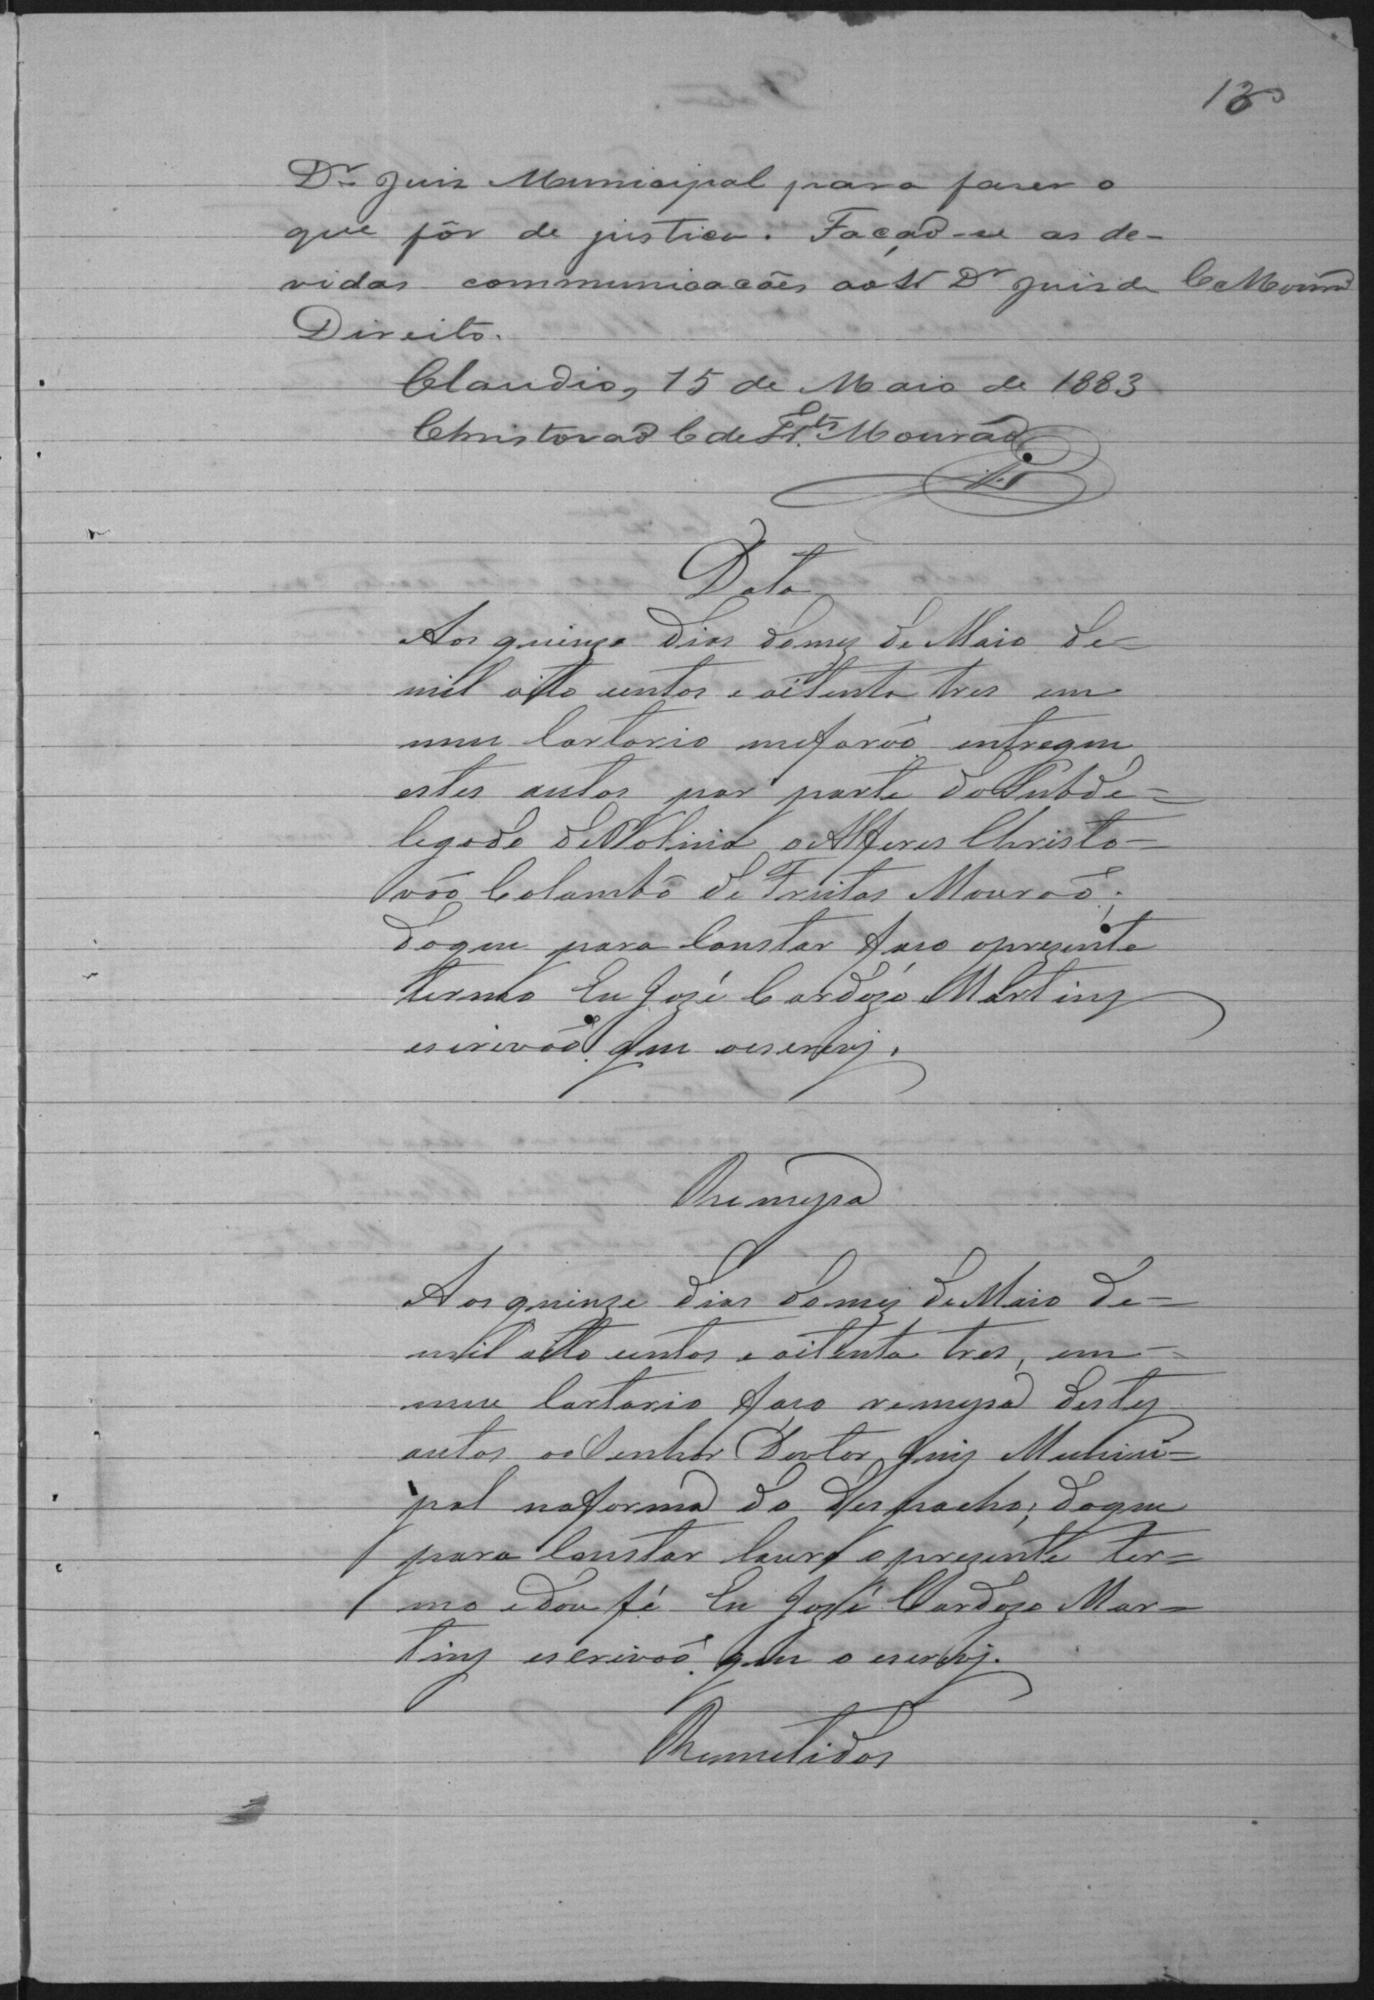 13
Dr. Juiz Municipal para fazer o
que fôr de justica. Façaõ-se as de-
vidas communicacões ao Sr Dr Juiz de C Mourão
Direito.
Claudio, 15 de Maio de 1883
Christovaõ C de Frtas Mouraõ
Data
Aos quinze dias do mez de Maio de=
mil oito centos e oitenta tres em
meu Cartorio me foraõ entregue
estes autos por parte do Subde=
legado de Policia o Alferes Christo=
vaõ Colombo de Freitas Mouraõ;
do que para Constar faço o prezente
termo Eu José Cardozo Martins
escrivaõ que o escrevi.
Remessa
Aos quinze dias do mez de Maio de=
mil oito centos e oitenta tres, em=
meu Cartorio faço remessa destes
autos ao Senhor Doutor Juiz Munici=
pal na forma do despacho; do que
para Constar lavro o prezente ter=
mo e dou fé Eu José Cardozo Mar=
tins escrivaõ que o escrevi.
Remetidos